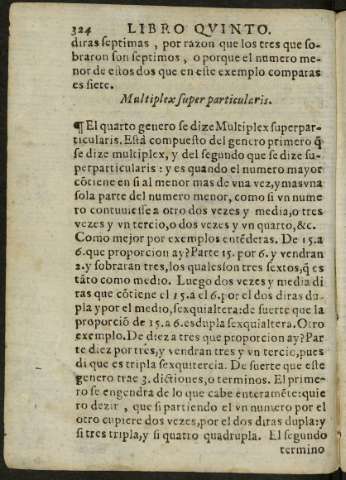 324 LIBRO QVINTO.
diras septimas , por razon que los tres que so-
braron son septimos , o porque el numero me-
nor de estos dos que en este exemplo comparas
es siete.
Multiplex super particularis.
¶ El quarto genero se dize Multiplex superpar-
ticularis. Està compuesto del genero primero q̃
se dize multiplex, y del segundo que se dize su-
perparticularis : y es quando el numero mayor
cõtiene en si al menor mas de vna vez, y mas vna
sola parte del numero menor, como si vn nume
ro contuuiesse a otro dos vezes y media, o tres
vezes y vn tercio, o dos vezes y vn quarto, &c.
Como mejor por exemplos entẽderas. De 15. a
6. que proporcion ay? Parte 15. por 6. y vendran
2. y sobraran tres, los quales son tres sextos, q̃ es
tãto como medio. Luego dos vezes y media di
ras que cõtiene el 15. a el 6. por el dos diras du-
pla y por el medio, sexquialtera: de suerte que la
proporciõ de 15. a 6. es dupla sexquialtera. Otro
exemplo. De diez a tres que proporcion ay? Par
te diez por tres, y vendran tres y vn tercio, pues
di que es tripla sexquitercia. De suerte que este
genero trae 3. dictiones, o terminos. El prime-
ro se engendra de lo que cabe enteramẽte: quie
ro dezir , que si partiendo el vn numero por el
otro cupiere dos vezes, por el dos diras dupla: y
si tres tripla, y si quatro quadrupla. El segundo
termino